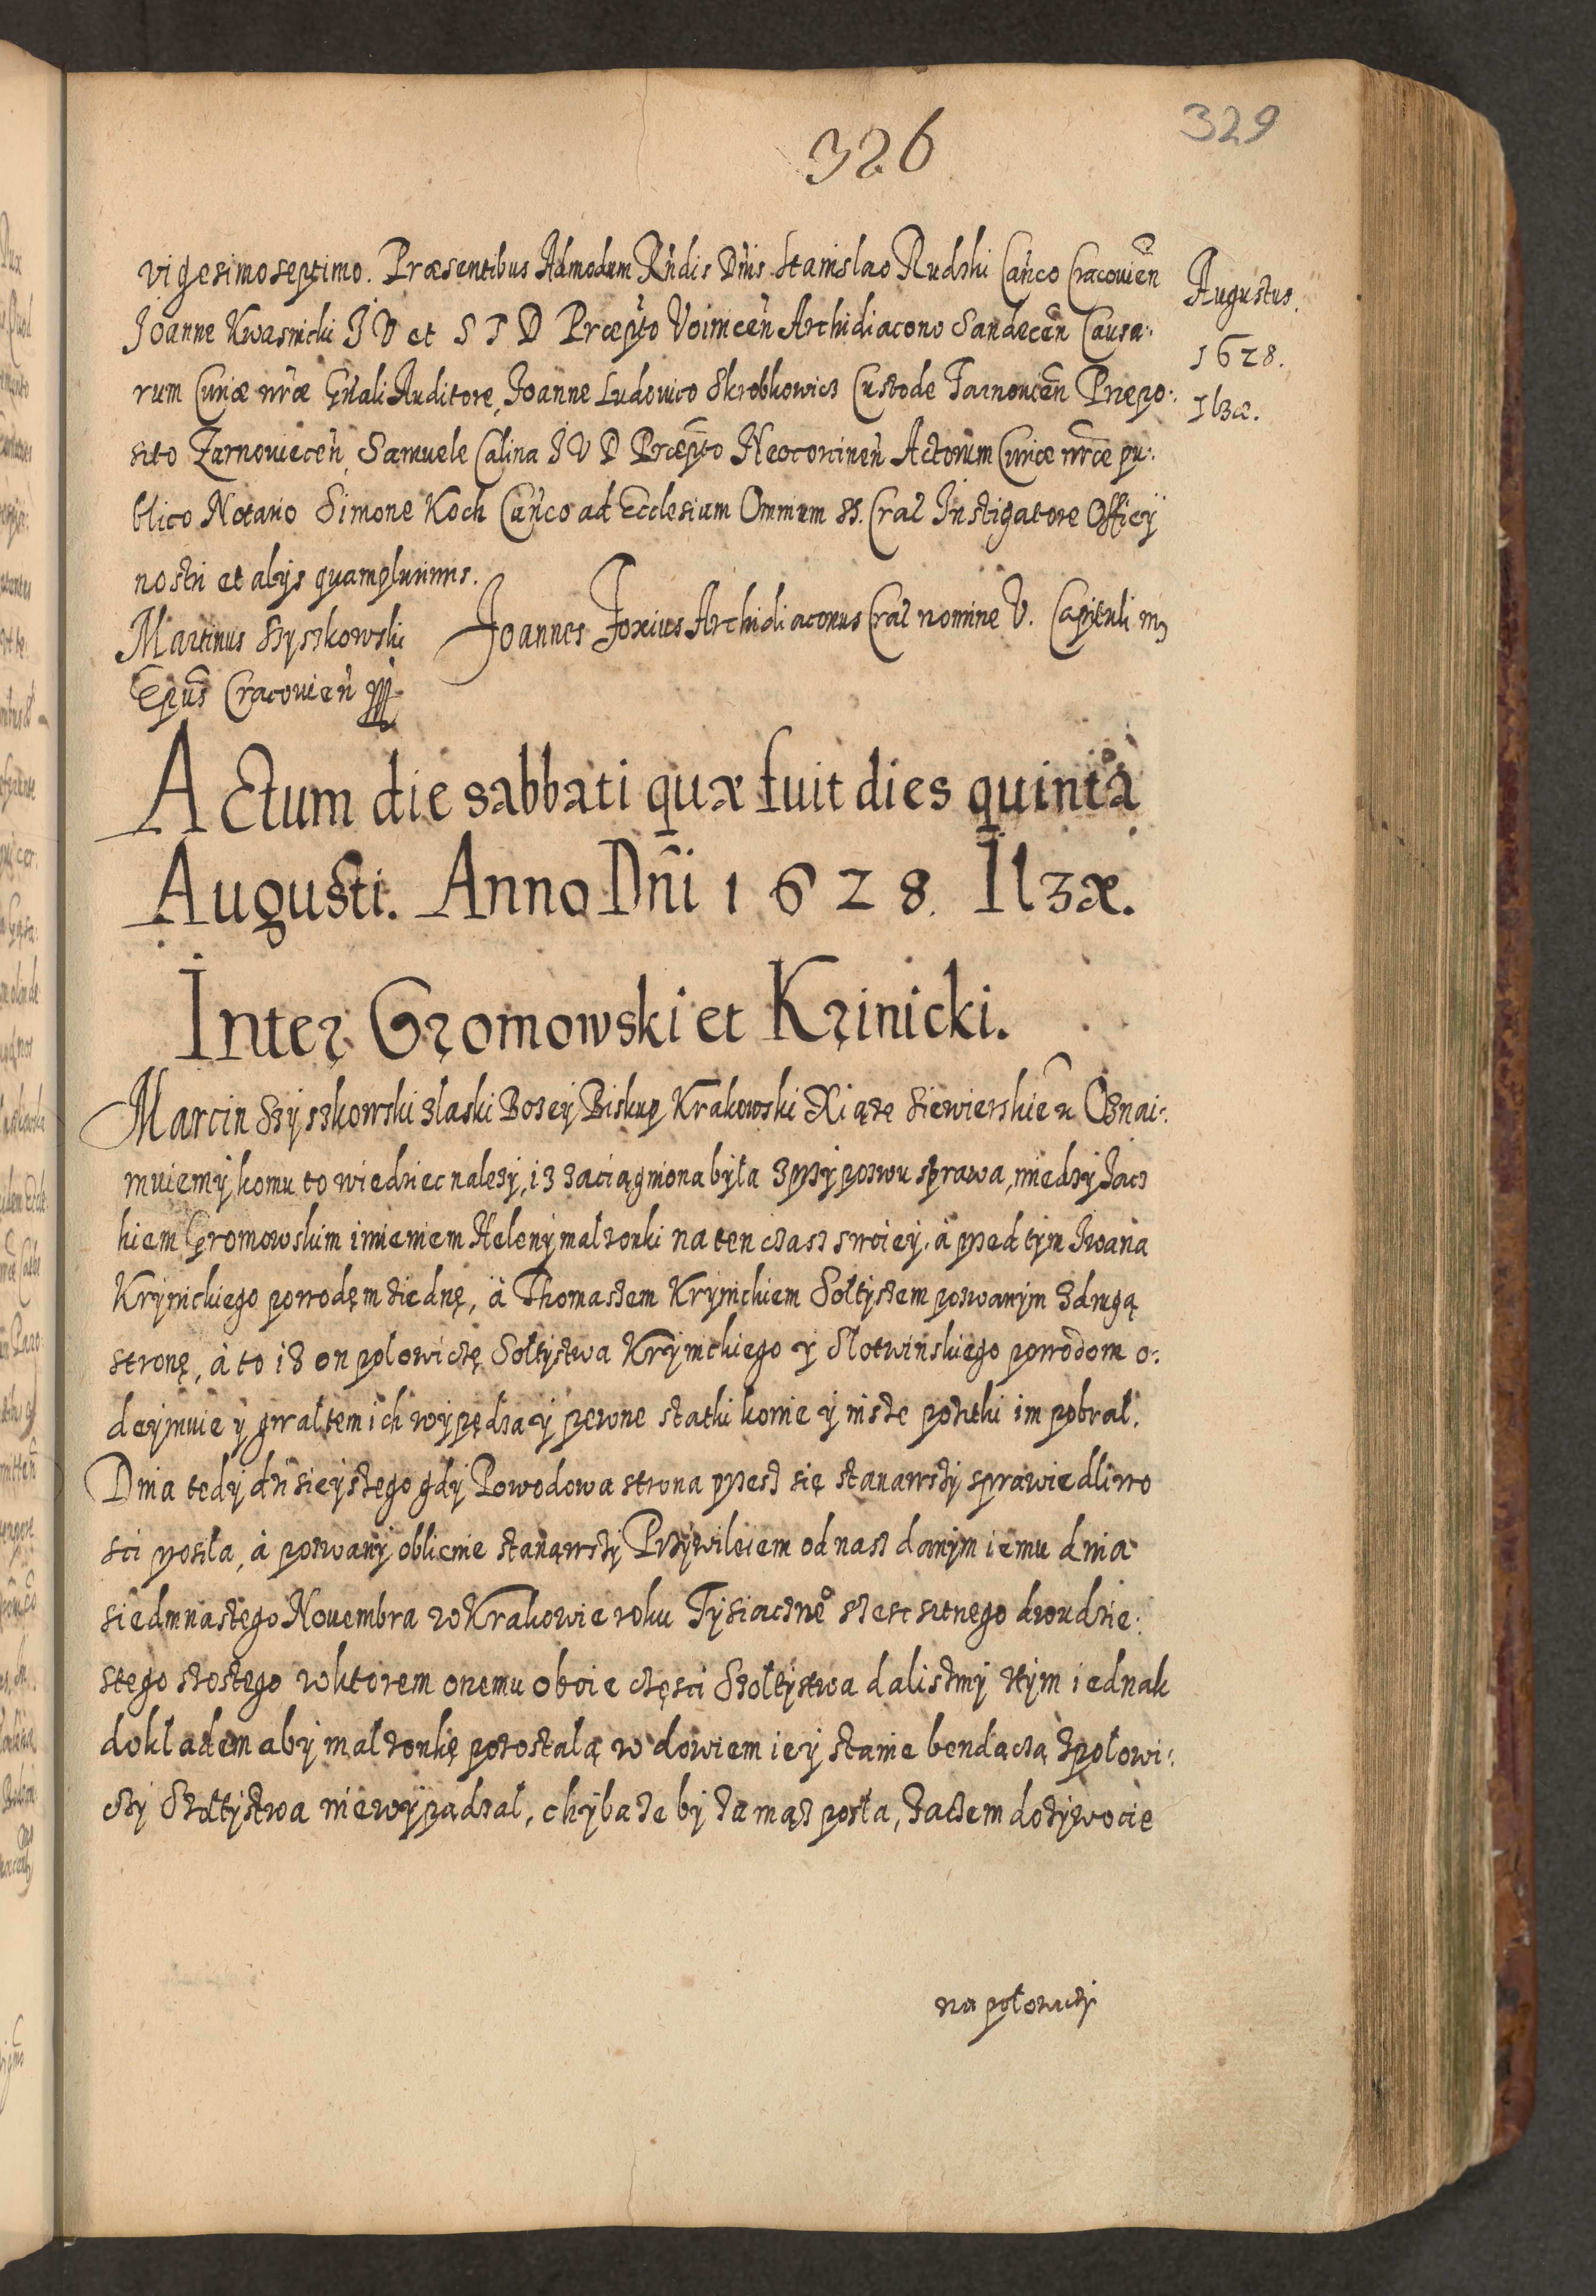 326
329
vigesimoseptimo. Præsentibus Admodum Rñdis Dñis Stanislao Rudzki Cañco Cracovieñ
Joanne Kwasnicki J V et S T D Præpto Voiniceñ Archidiacono Sandeceñ Causa:
rum Curiæ nr̃æ Gñali Auditore, Joanne Ludovico Skrobkowicz Custode Tarnovieñ Præpo:
sito Zarnovieceñ, Samuele Calina J V D Præpto Neocorcineñ Actorum Curiæ nr̃æ pu:
blico Notario Simone Koch Cañco ad Ecclesium Omnium SS. Cral Instigatore Officÿ
nostri et alijs quamplurimis.
Martinus Szyszkowski
Epus Cracovieñ
Joannes Foxius Archidiaconus Cral nomine V. Capituli mp
Augustus.
1628.
Ilzæ.
Actum die sabbati quæ fuit dies quinta
Augusti. Anno Dñi 1628. Ilzæ.
Inter Gromowski et Krinicki.
Marcin Szyszkowski z laski Bozey Biskup Krakowski Xiąze Siewierskie &c Oznai:
muiemy komu to wiedziec nalezy, iz zaciągniona była z przypozwu sprawa, miedzy Jacz
kiem Gromowskim imieniem Heleny malzonki na ten czasz swoiey, à przed tym Iwana
Krynickiego powodęm ziednę, à Thomaszem Krynickiem Soltyszem pozwanym z drugą
stronę, à to iz on polowiczę Soltystwa Krynickiego y Slotwinskiego powodom o:
deymuie y gwaltem ich wypędza y pewne statki konie y insze pozitki im pobral.
Dnia tedy dzisieyszego gdy Powodowa strona przesz się stanawszy sprawiedliwo
sci prosiła, à pozwany oblicznie stanąwszy Przywileiem od nasz danym iemu dnia
siedmnastego Novembra w Krakowie roku Tysiączneo szescsetnego dwudzie:
stego szostego w ktorem onemu oboie częsci Szoltystwa dalismy z tym iednak
dokladem aby malzonkę pozostalą w dowiem iey stanie bendączą z połowi:
czy Szoltystwa niewypądzal, chyba ze by za mąz poszła, zaczem dozywocie
na połowiczy